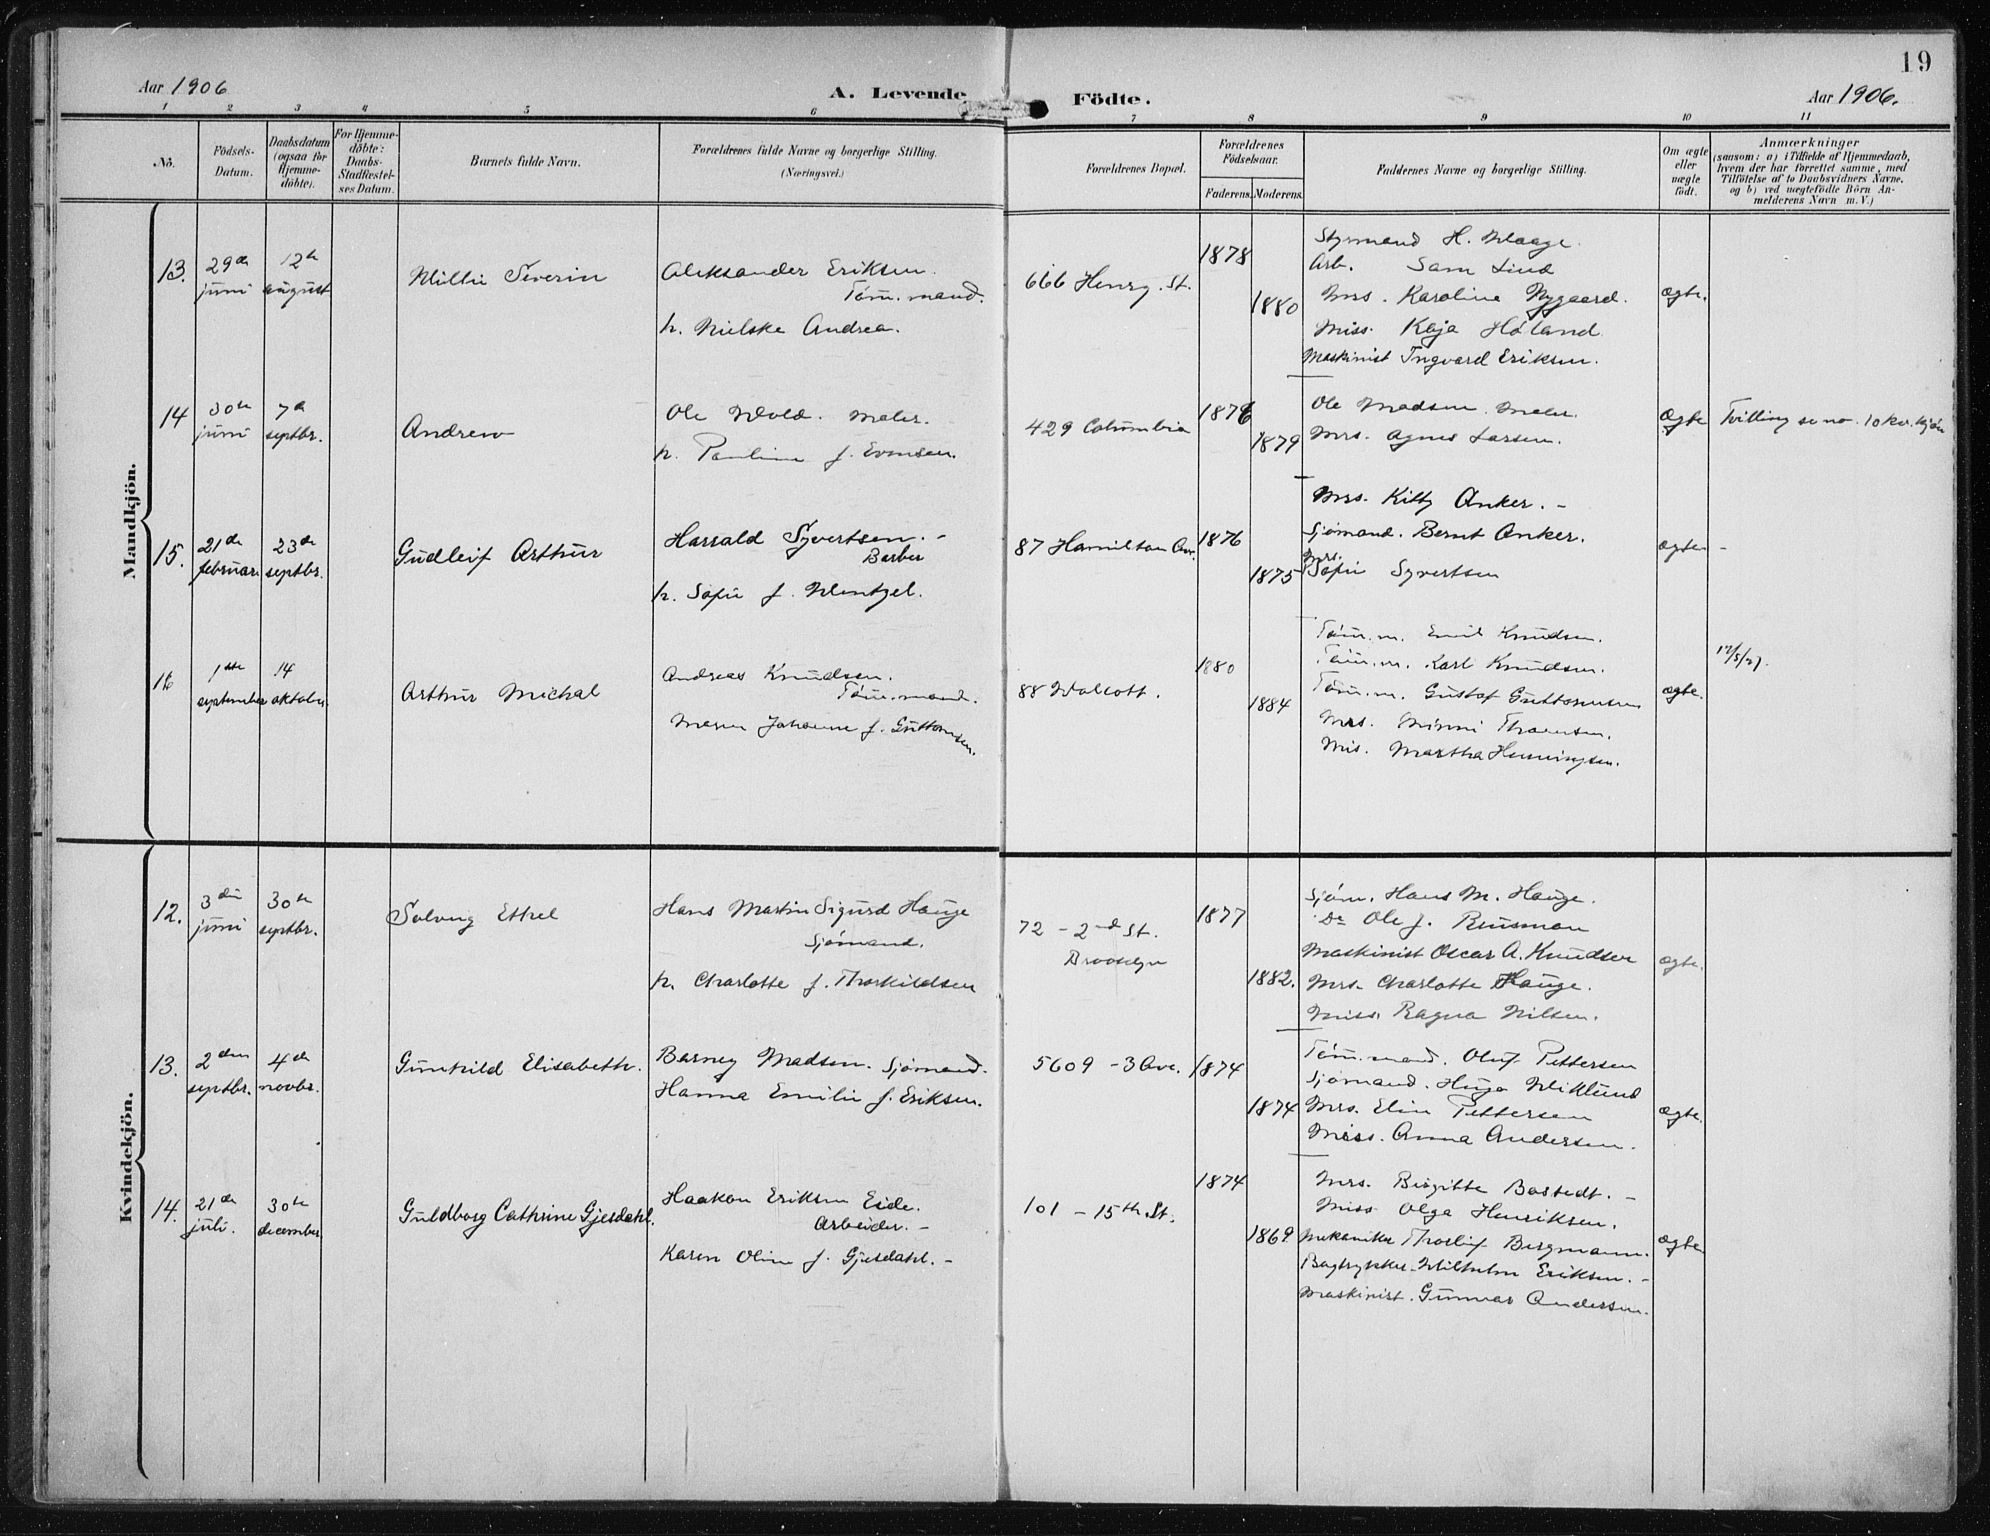 19
Aar 1906
A. Levende Födte.
Aar 1906.
1 2 3 4 5 6 7 8 9 10 11
No.
Födsels-
Datum.
Daabsdatum
(ogsaa for
Hjemme-
döbte).
For Hjemme-
döbte:
Daabs-
Stadfæstel-
ses Datum.
Barnets fulde Navn.
Forældrenes fulde Navne og borgerlige Stilling.
(Næringsvei.)
Forældrenes Bopæl.
Forældrenes
Födselsaar.
Faderens. Moderens.
Faddernes Navne og borgerlige Stilling.
Om ægte
eller
uægte
födt.
Anmærkninger
(saasom: a) i Tilfælde af Hjemmedaab,
hvem der har forrettet samme, med
Tilföielse af to Daabsvidners Navne.
og b) ved uægtefödte Börn An-
melderens Navn m. V.)
Mandkjön.
13.
29de
juni
12te
august
Severin
Aleksander Eriksen.
Tøm. mand.
h. Nielske Andrea.
666 Henry. St.
1878
1880
Styrmand H. Waage.
Arb. Sam Lind
Mrs. Karoline Nygaard.
Miss. Kaja Høland
Maskinist Ingvard Eriksen.
ægte.
14
30te
juni
7de
septbr.
Andrew
Ole Wold. Maler.
h. Pauline f. Evensen.
429 Columbia
1876
1879
Ole Madsen. Maler.
Mrs. Agnes Larsen.
Ægte
Tvilling se no. 10 kv. kjøn
15.
21de
februar.
23de
septbr.
Gudleif Arthur
Harrald Syvertsen. -
Barber
h. Sofie f. Wentzel.
87 Hamilton Av.
1876
1875
Mrs. Kitty Anker. -
Sjømand. Bernt Anker.
Mrs.
Sofie Syvertsen
ægte
-
16
1ste
september
14
oktober.
Arthur Michal
Andreas Knudsen.
Tøm. mand.
Maren Johanne f. Guttormsen.
88 Walcott.
1880
1884
Tøm. m. Emil Knudsen.
Tøm. m. Karl Knudsen.
Tøm. m. Gustaf Guttormsen
Mrs. Minni Thomsen.
Mis. Martha Henningsen.
ægte.
17/5/27.
Kvindekjön.
12.
3die
juni
30te
septbr.
Solveig Ethel
Hans Martin Sigurd Hauge
Sjømand.
h. Charlotte f. Thorkildsen
72 - 2nd St.
Brooklyn
1877
1882.
Sjøm. Hans M. Hauge.
Dr Ole J. Ruusman
Maskinist Oscar A. Knudsen
Mrs. Charlotte Hauge.
Miss. Ragna Nilsen.
ægte.
13.
2den
septbr.
4de
novbr.
Gunhild Elisabeth.
Barney Madsen. Sjømand.
Hanna Emilie f. Eriksen.
5609 - 3 Ave.
1874
1874
Tøm. mand. Oluf Pettersen
Sjømand. Hugo Wiklund
Mrs. Elin Pettersen
Miss. Anna Andersen.
ægte.
14.
21de
juli.
30te
december
Guldborg Cathrine Gjesdahl.
Haakon Eriksen Eide.
Arbeider. -
Karen Oline f. Gjesdahl. -
101 - 15th St.
1874
1869
Mrs. Birgitte Bostedt. -
Miss Olga Henriksen.
Mekaniker Thorleif Bergmann.
Bogtrykker Wilhelm Eriksen. -
Maskinist. Gunnar Andersen.
ægte